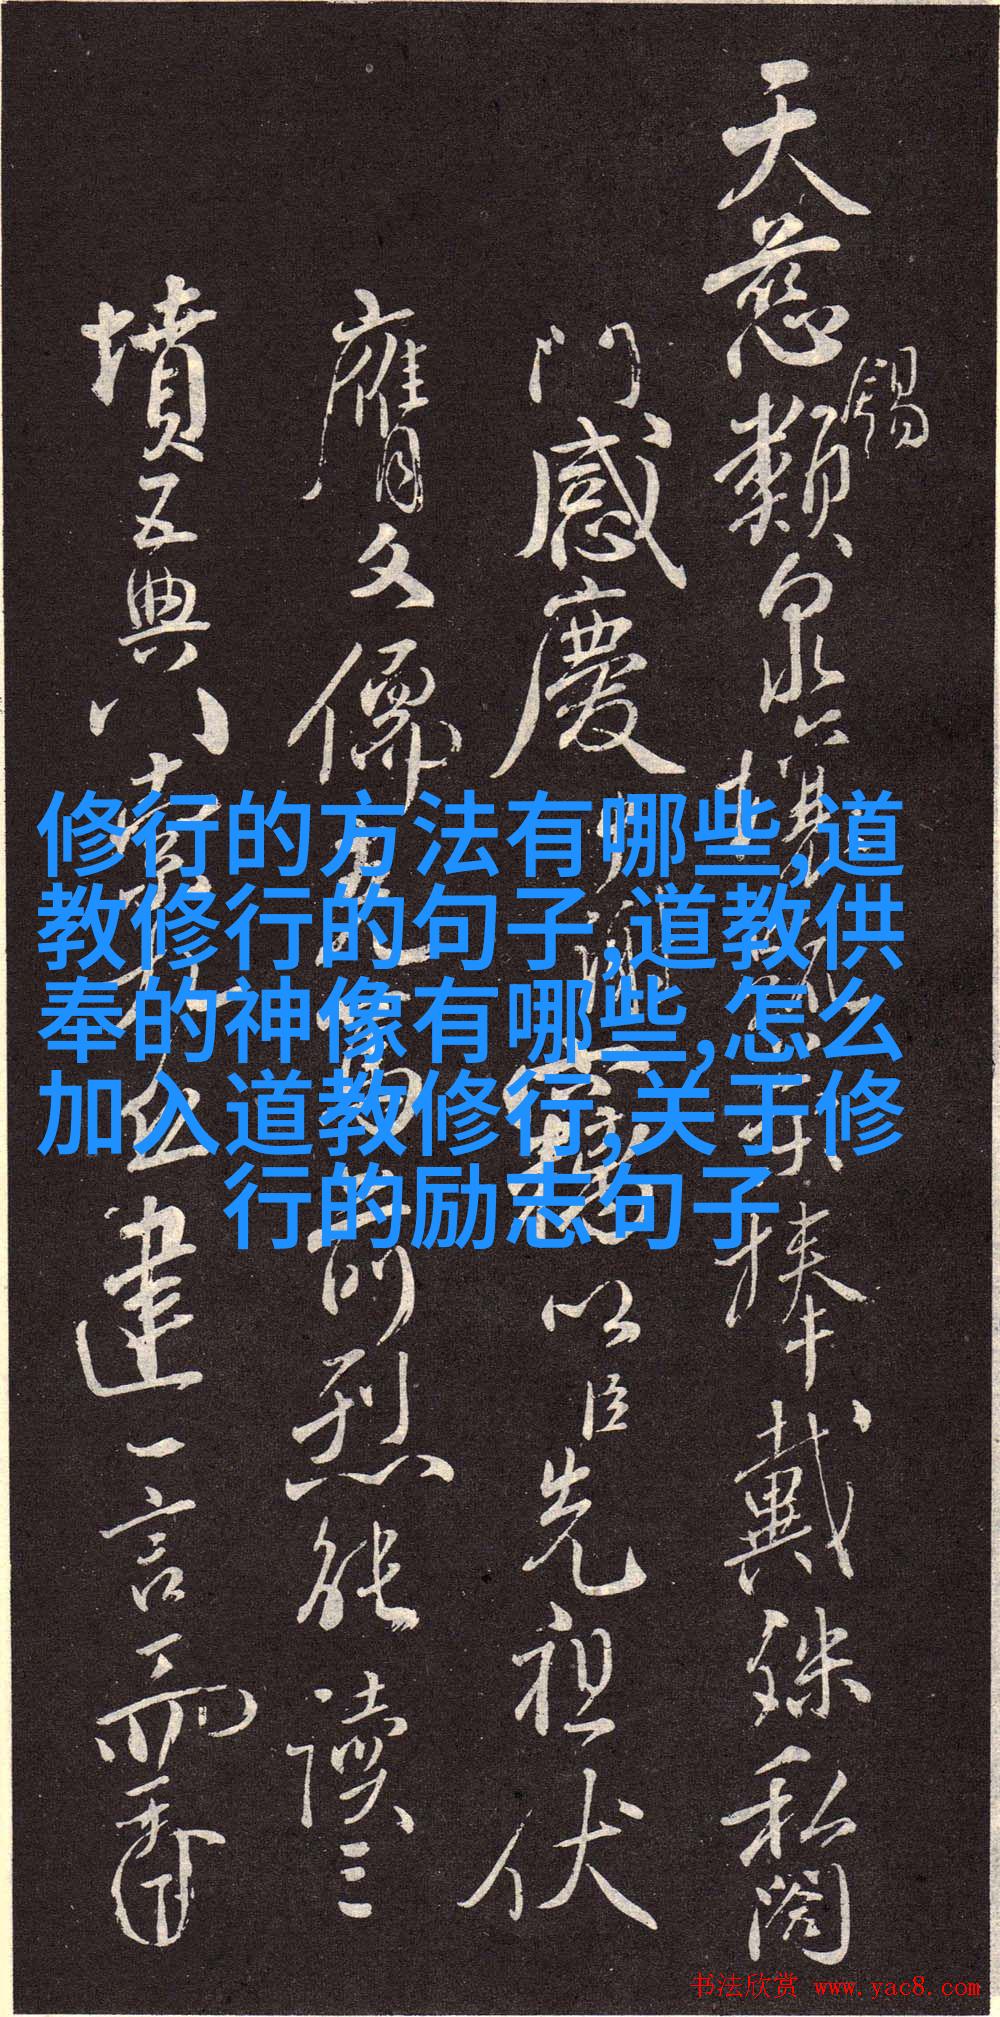 天慈錫類泉 捧戴殊私閤
門感慶 以臣先祖伏
膺文儒 前烈能讀三
墳五典八索 建一言
修行的方法有哪些,道
教修行的句子,道教供
奉的神像有哪些,怎么
加入道教修行,关于修
行的励志句子
书法欣赏 www.yac8.com